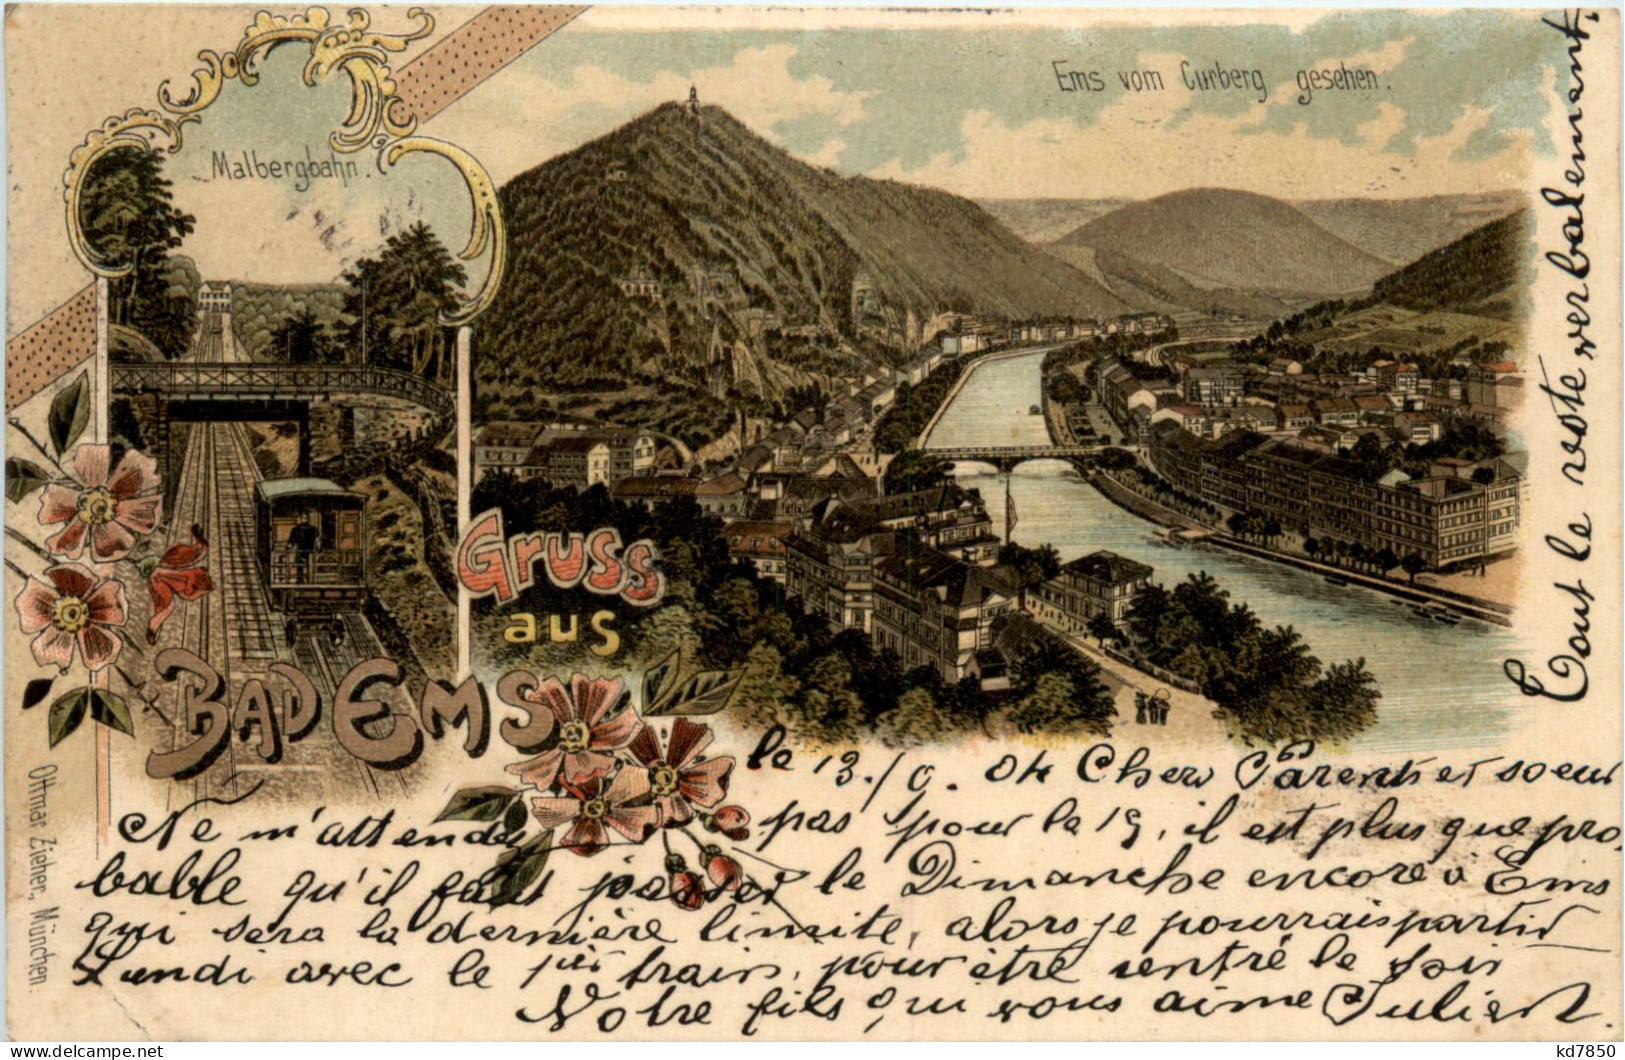 Malbergbahn.
Ems vom Curberg gesehen.
Gruss
aus
BAD EMS
Ottmar Zieher, München.
le 13./9. 04 Chers Parents et soeur
Ne m'attendez pas pour le 19, il est plus que pro-
bable qu'il faut passer le Dimanche encore à Ems
qui sera la dernière limite, alors je pourrais partir
Lundi avec le 1er train, pour être rentré le soir
Votre fils qui vous aime Juliert.
Tout le reste verbalement.
kd7850